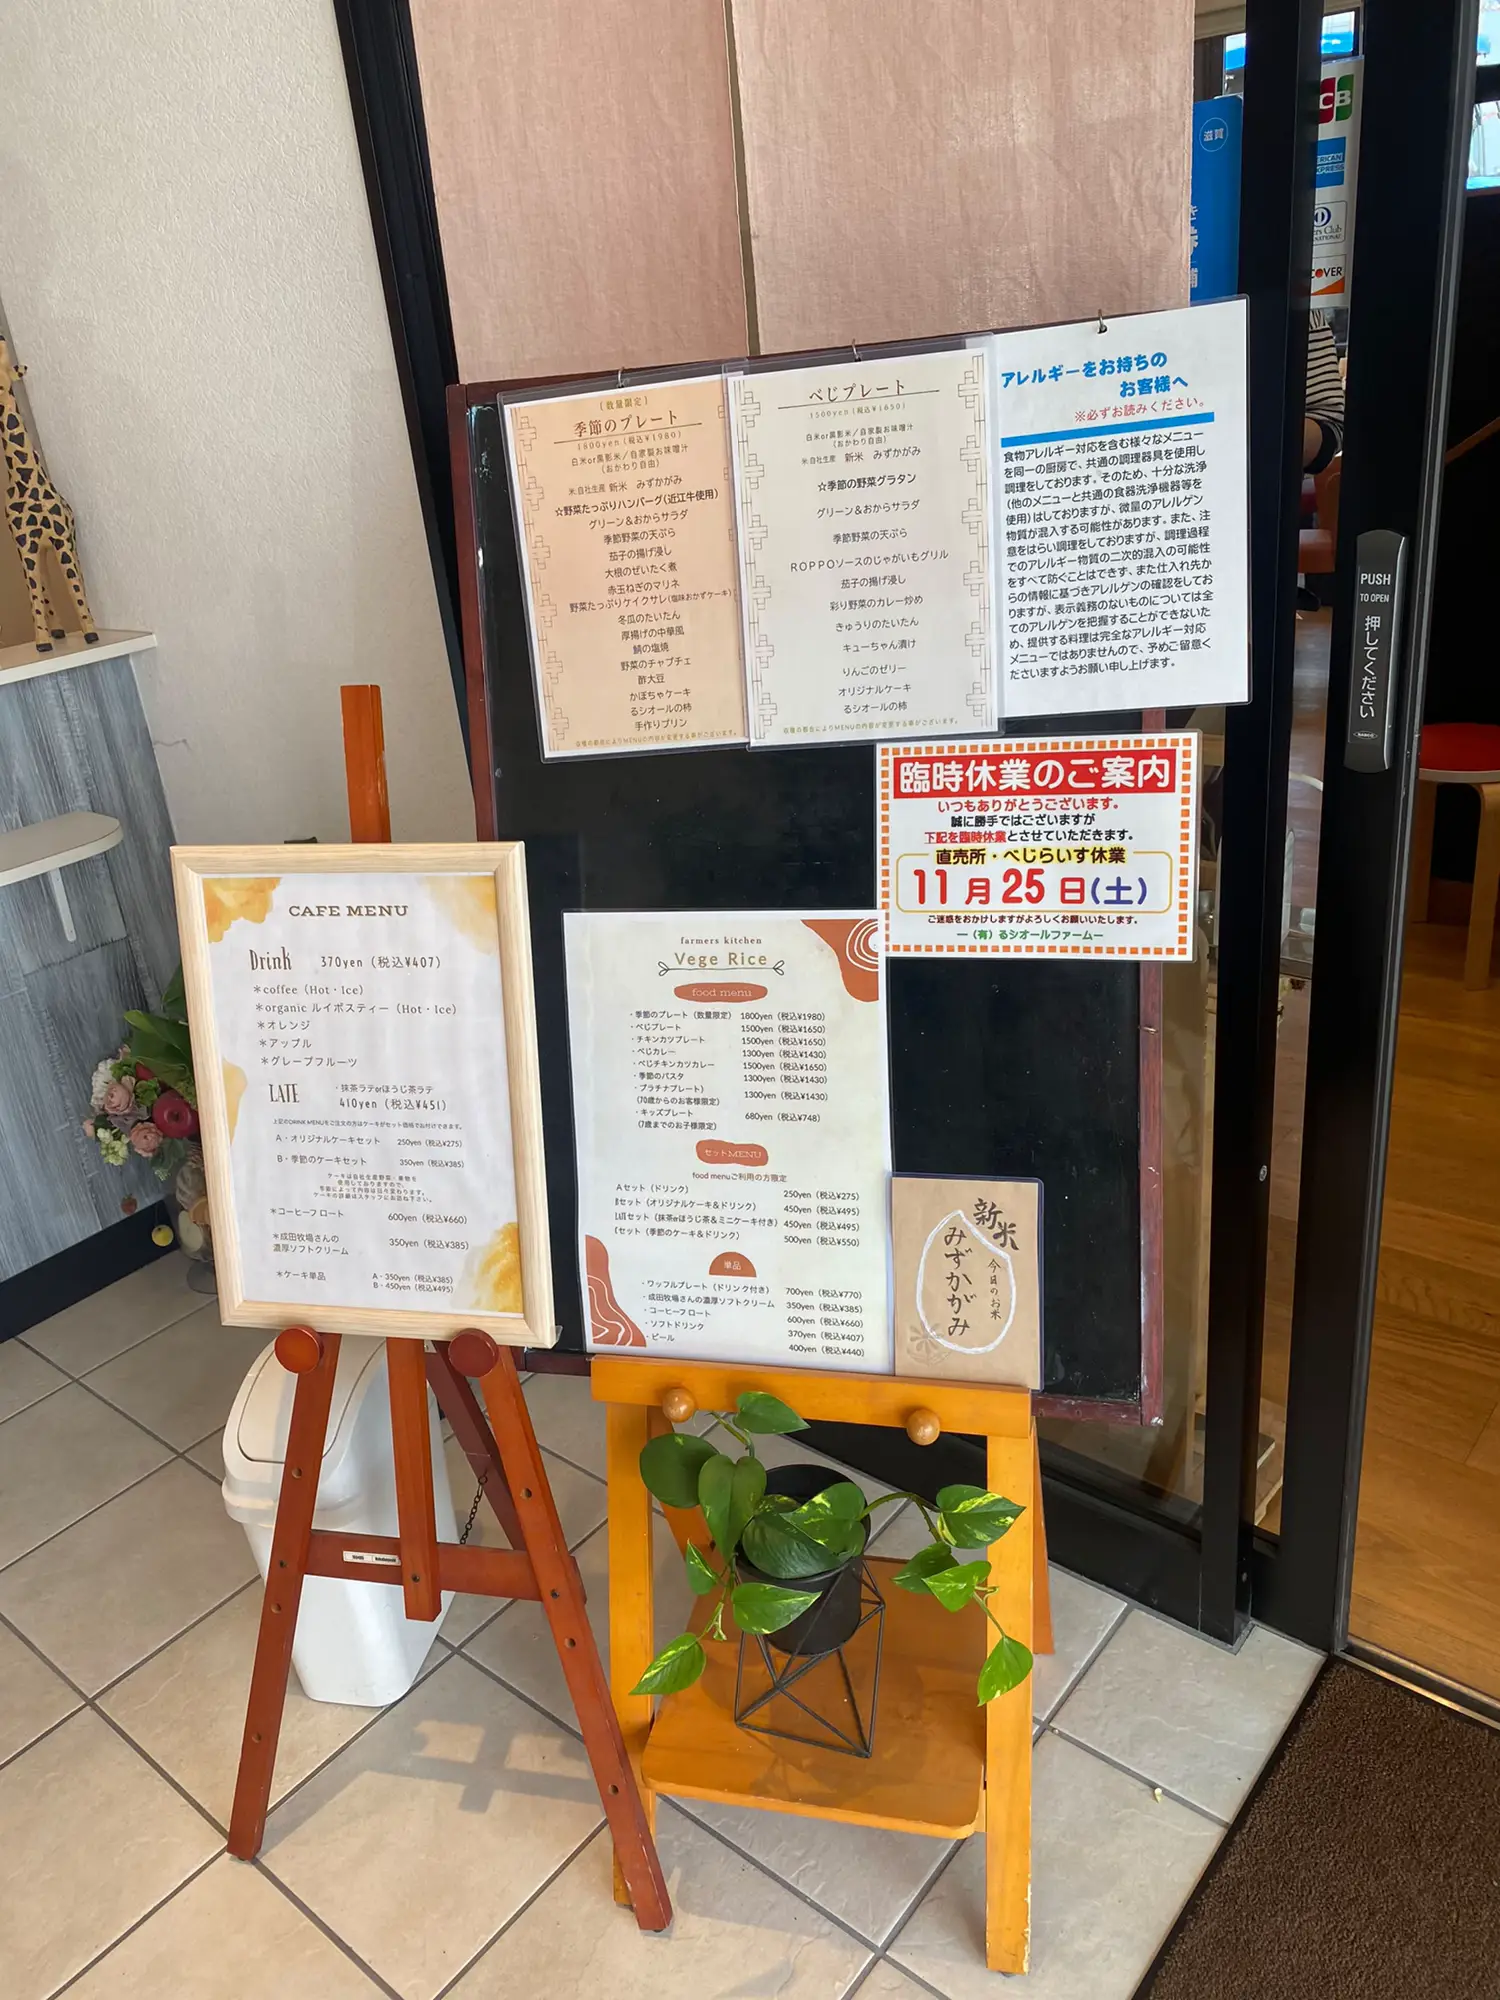 滋賀
CB
RICAN
XPRESS
ers Club
COVER
PUSH
TO OPEN
押してください
[数量限定]
季節のプレート
1800yen(税込¥1980)
白米or黒影米/自家製お味噌汁
(おかわり自由)
米:自社生産 新米 みずかがみ
☆野菜たっぷりハンバーグ(近江牛使用)
グリーン&おからサラダ
季節野菜の天ぷら
茄子の揚げ浸し
大根のぜいたく煮
赤玉ねぎのマリネ
野菜たっぷりケイクサレ(塩味おかずケーキ)
冬瓜のたいたん
厚揚げの中華風
鯖の塩焼
野菜のチャプチェ
酢大豆
かぼちゃケーキ
るシオールの柿
手作りプリン
収穫の都合によりMENUの内容が変更する事がございます。
べじプレート
1500yen(税込¥1650)
白米or黒影米/自家製お味噌汁
(おかわり自由)
米:自社生産 新米 みずかがみ
☆季節の野菜グラタン
グリーン&おからサラダ
季節野菜の天ぷら
ROPPOソースのじゃがいもグリル
茄子の揚げ浸し
彩り野菜のカレー炒め
きゅうりのたいたん
キューちゃん漬け
りんごのゼリー
オリジナルケーキ
るシオールの柿
収穫の都合によりMENUの内容が変更する事がございます。
アレルギーをお持ちの
お客様へ
※必ずお読みください。
食物アレルギー対応を含む様々なメニュー
を同一の厨房で、共通の調理器具を使用し
調理をしております。そのため、十分な洗浄
(他のメニューと共通の食器洗浄機器等を
使用)はしておりますが、微量のアレルゲン
物質が混入する可能性があります。また、注
意をはらい調理をしておりますが、調理過程
でのアレルギー物質の二次的混入の可能性
をすべて防ぐことはできず、また仕入れ先か
らの情報に基づきアレルゲンの確認をしてお
りますが、表示義務のないものについては全
てのアレルゲンを把握することができないた
め、提供する料理は完全なアレルギー対応
メニューではありませんので、予めご留意く
ださいますようお願い申し上げます。
臨時休業のご案内
いつもありがとうございます。
誠に勝手ではございますが
下記を臨時休業とさせていただきます。
直売所・べじらいす休業
11月25日(土)
ご迷惑をおかけしますがよろしくお願いいたします。
ー(有)るシオールファームー
CAFE MENU
Drink 370yen(税込¥407)
*coffee(Hot・Ice)
*organic ルイボスティー(Hot・Ice)
*オレンジ
*アップル
*グレープフルーツ
LATE ・抹茶ラテorほうじ茶ラテ
410yen(税込¥451)
上記のDRINK MENUをご注文の方はケーキがセット価格でお付けできます。
A・オリジナルケーキセット 250yen(税込¥275)
B・季節のケーキセット 350yen(税込¥385)
ケーキは自社生産野菜・果物を
使用しておりますので、
季節によって内容は日々変わります。
ケーキの詳細はスタッフにお尋ね下さい。
*コーヒーフロート 600yen(税込¥660)
*成田牧場さんの
濃厚ソフトクリーム 350yen(税込¥385)
*ケーキ単品 A・350yen(税込¥385)
B・450yen(税込¥495)
farmers kitchen
Vege Rice
food menu
・季節のプレート(数量限定) 1800yen(税込¥1980)
・べじプレート 1500yen(税込¥1650)
・チキンカツプレート 1500yen(税込¥1650)
・べじカレー 1300yen(税込¥1430)
・べじチキンカツカレー 1500yen(税込¥1650)
・季節のパスタ 1300yen(税込¥1430)
・プラチナプレート) 1300yen(税込¥1430)
(70歳からのお客様限定)
・キッズプレート 680yen(税込¥748)
(7歳までのお子様限定)
セットMENU
food menuご利用の方限定
Aセット(ドリンク) 250yen(税込¥275)
Bセット(オリジナルケーキ&ドリンク) 450yen(税込¥495)
LATEセット(抹茶orほうじ茶&ミニケーキ付き) 450yen(税込¥495)
Cセット(季節のケーキ&ドリンク) 500yen(税込¥550)
単品
・ワッフルプレート(ドリンク付き) 700yen(税込¥770)
・成田牧場さんの濃厚ソフトクリーム 350yen(税込¥385)
・コーヒーフロート 600yen(税込¥660)
・ソフトドリンク 370yen(税込¥407)
・ビール 400yen(税込¥440)
新米
今日のお米
みずかがみ